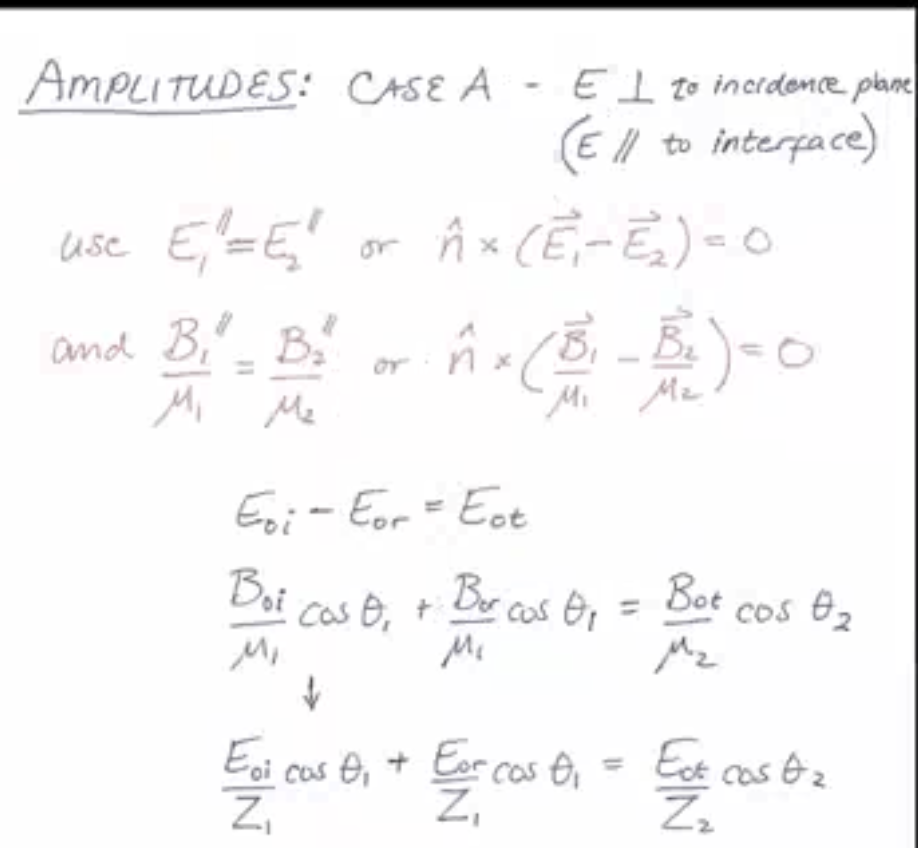 AMPLITUDES: CASE A - E ⊥ to incidence plane
(E // to interface)
use E₁″ = E₂″ or n̂ × (E⃗₁ - E⃗₂) = 0
and B₁″/μ₁ = B₂″/μ₂ or n̂ × (B⃗₁/μ₁ - B⃗₂/μ₂) = 0
E₀ᵢ - E₀ᵣ = E₀ₜ
B₀ᵢ/μ₁ cos θ₁ + B₀ᵣ/μ₁ cos θ₁ = B₀ₜ/μ₂ cos θ₂
↓
E₀ᵢ/Z₁ cos θ₁ + E₀ᵣ/Z₁ cos θ₁ = E₀ₜ/Z₂ cos θ₂